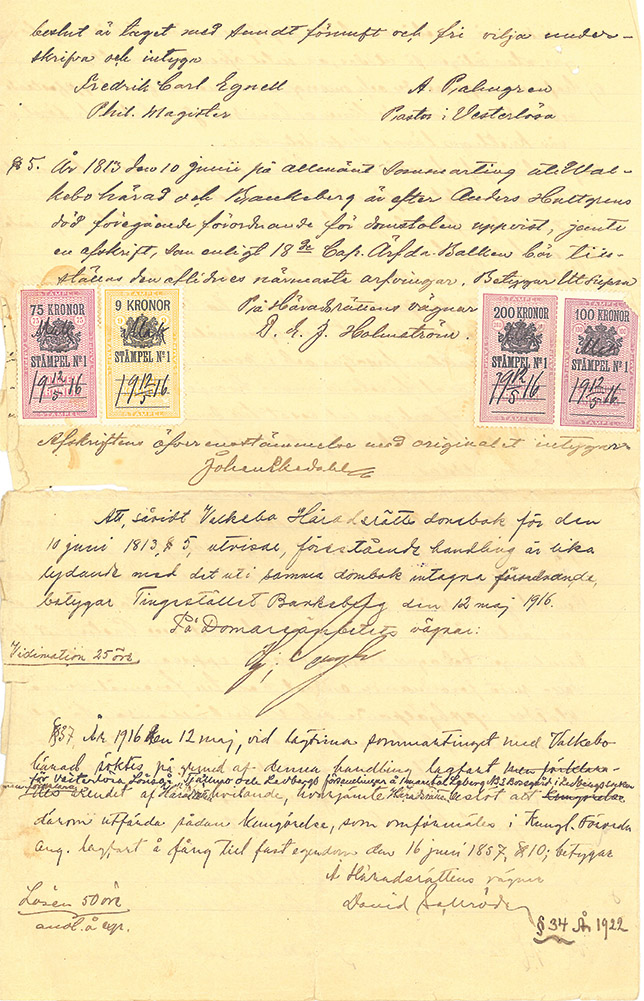 beslut är taget med sundt förnuft och fri vilja under-
skrifva och intyga
Fredrik Carl Egnell A. Palmgren
Phil. Magister Pastor i Vesterlösa
§ 5. År 1813 den 10 Junii på allmänt Sommarting
kebo härad och Bankeberg är efter Anders Hultgrens
död föregående förordnande för domstolen uppvist, jemte
en afskrift, som enligt 18 de Cap. Ärfda Balken bör till-
ställas den aflidnes närmaste arfvingar. Betygar Ut Supra
På Häradsrättens vägnar
D. E. J. Holmström.
STÄMPEL
75 KRONOR
STÄMPEL No 1
19 12/5 16
STÄMPEL
STÄMPEL
9 KRONOR
STÄMPEL No 1
19 12/5 16
STÄMPEL
STÄMPEL
200 KRONOR
STÄMPEL No 1
19 12/5 16
STÄMPEL
STÄMPEL
100 KRONOR
STÄMPEL No 1
19 12/5 16
STÄMPEL
Afskriftens öfverensstämmelse med originalet intygar
Johan Ekedahl
Att, såvidt Valkebo Häradsrätts dombok för den
10 juni 1813, § 5, utvisar, förestående handling är lika
lydande med det uti samma dombok intagna förordnande,
betygar Tingsstället Bankeberg den 12 maj 1916.
På Domareämbetets vägnar:
Vidimation 25 öre
§37 År 1916 den 12 maj, vid lagtima sommartinget med Valkebo
härad söktes på grund af denna handling lagfart
för Västerlösa Lönsås, Fjällmo och
ärendet af Häradsrätten hvilande, hvarjämte Häradsrätten beslöt att kungörelse
därom utfärda sådan kungörelse, som omförmäles i Kungl. Förordn.
ang. lagfart å fång till fast egendom den 16 juni 1857, § 10; betygar
Å Häradsrättens vägnar
Lösen 50 öre David
§ 34 År 1922